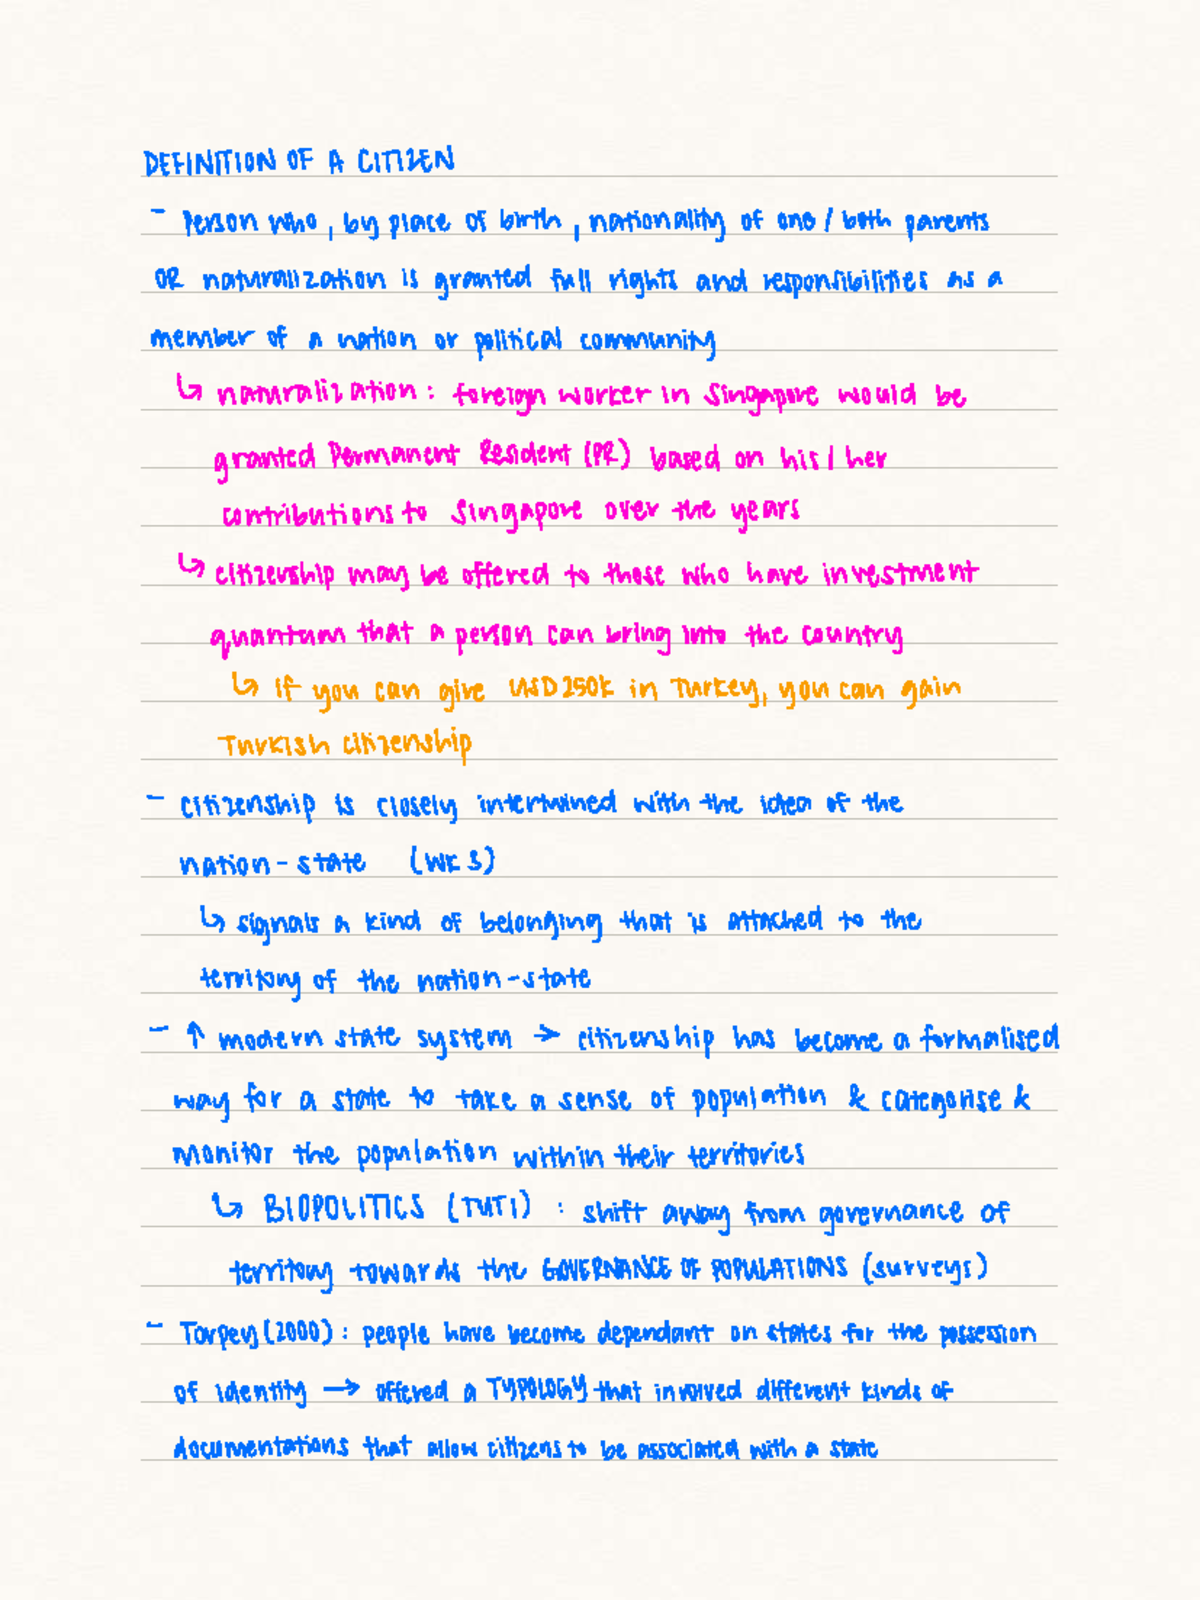 DEFINITION OF A CITIZEN
- Person who, by place of birth, nationality of one / both parents
OR naturalization is granted full rights and responsibilities as a
member of a nation or political community
↳ naturalization: foreign worker in Singapore would be
granted Permanent Resident (PR) based on his / her
contributions to Singapore over the years
↳ citizenship may be offered to those who have investment
quantum that a person can bring into the country
↳ If you can give USD250K in Turkey, you can gain
Turkish citizenship
- citizenship is closely intertwined with the idea of the
nation-state (WK 3)
↳ signals a kind of belonging that is attached to the
territory of the nation-state
- ↑ modern state system → citizenship has become a formalised
way for a state to take a sense of population & categorise &
monitor the population within their territories
↳ BIOPOLITICS (TUT1) : shift away from governance of
territory towards the GOVERNANCE OF POPULATIONS (surveys)
- Torpey (2000): people have become dependant on states for the possession
of identity → offered a TYPOLOGY that involved different kinds of
documentations that allow citizens to be associated with a state